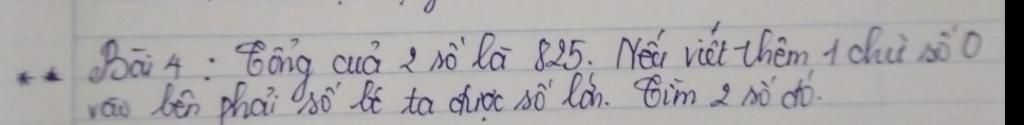 ** Bài 4 : Tổng của 2 số là 825. Nếu viết thêm 1 chữ số 0
vào bên phải số bé ta được số lớn. Tìm 2 số đó.